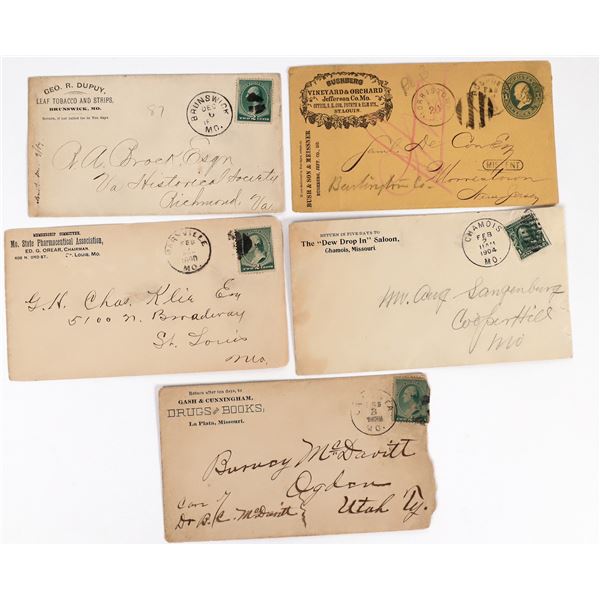 GEO. R. DUPUY,
LEAF TOBACCO AND STRIPS,
BRUNSWICK, MO.
Return, if not called for in Ten days.
87
BRUNSWICK
DEC
6
MO.
R. A. Brock Esqn
Va Historical Society
Richmond, Va.
BUSHBERG
VINEYARD & ORCHARD
Jefferson Co. Mo.
ST. LOUIS.
BUSH & SON & MEISSNER
MISSENT
Burlington Co.
Moorestown
New Jersey
MEMBERSHIP COMMITTEE.
Mo. State Pharmaceutical Association,
ED. G. OREAR, CHAIRMAN.
St. Louis, Mo.
MO.
G. H. Chas. Klie Esq
5100 N. Broadway
St. Louis
Mo
RETURN IN FIVE DAYS TO
The "Dew Drop In" Saloon,
Chamois, Missouri.
CHAMOIS
FEB
2
11AM
1904
MO.
Mr. Aug Langenburg
Cooper Hill
Mo
Return after ten days, to
GASH & CUNNINGHAM,
DRUGS AND BOOKS,
La Plata, Missouri.
3
MO.
Burney McDavitt
Ogden
Utah Ty.
Care of
Dr B. C. McDavitt